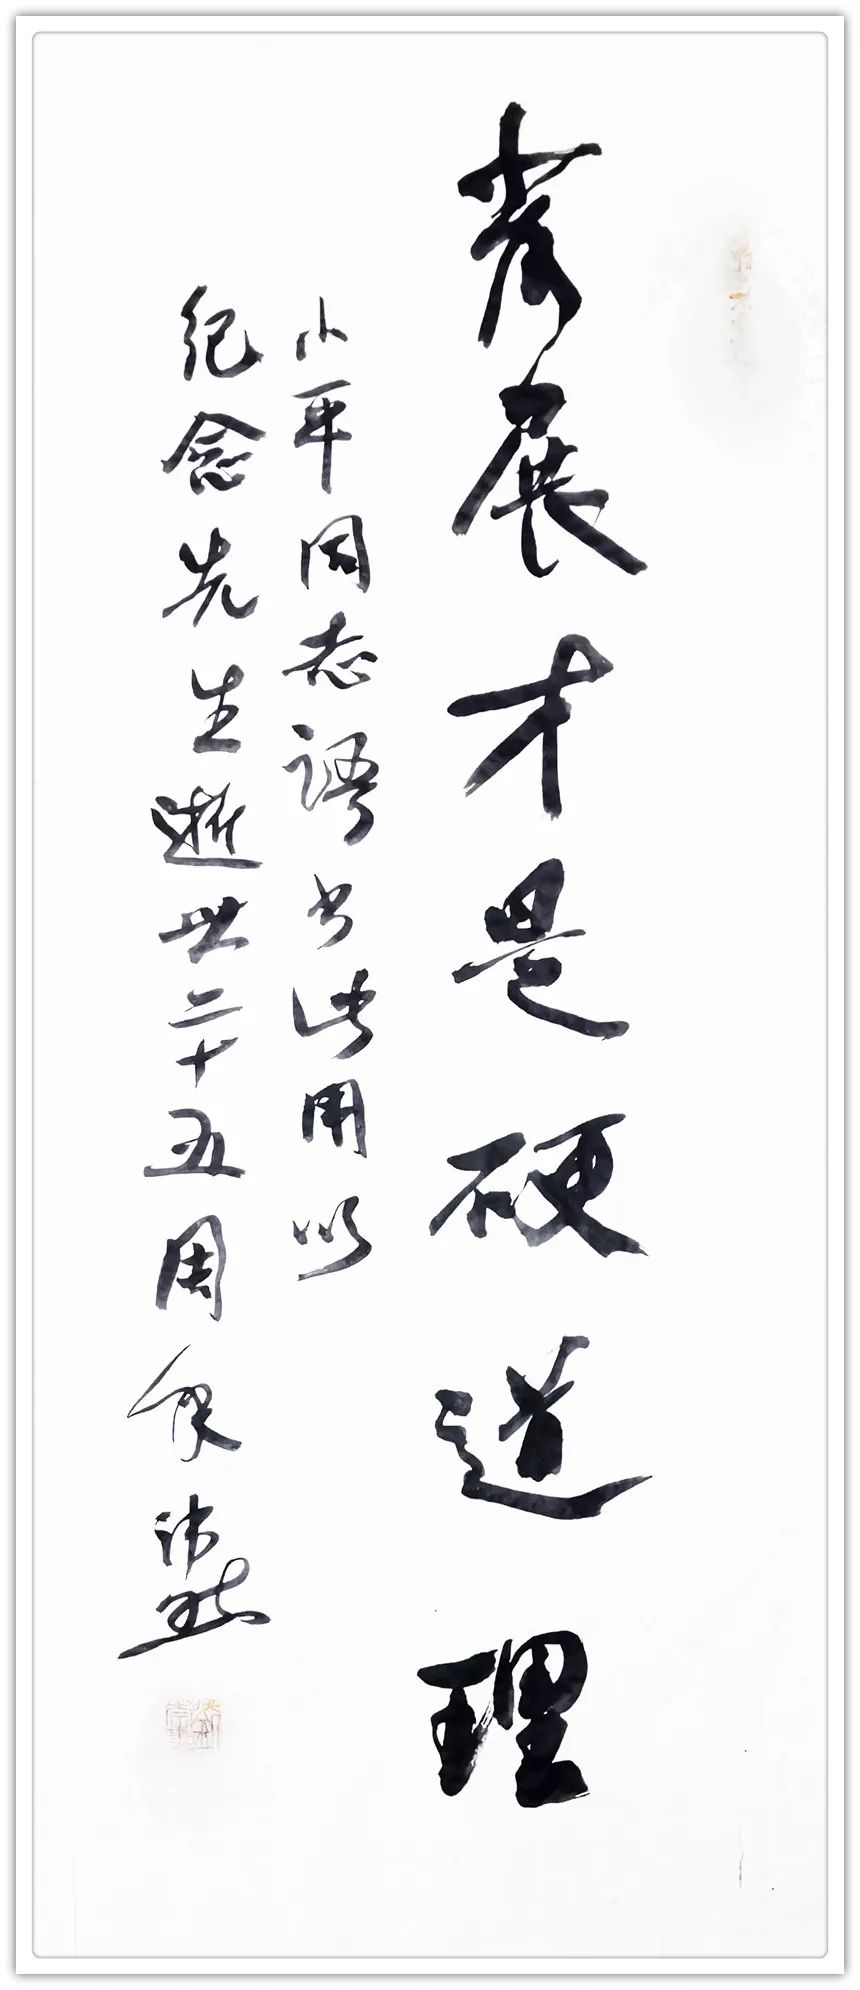 发展才是硬道理
小平同志语书此用以
纪念先生逝世二十五周年